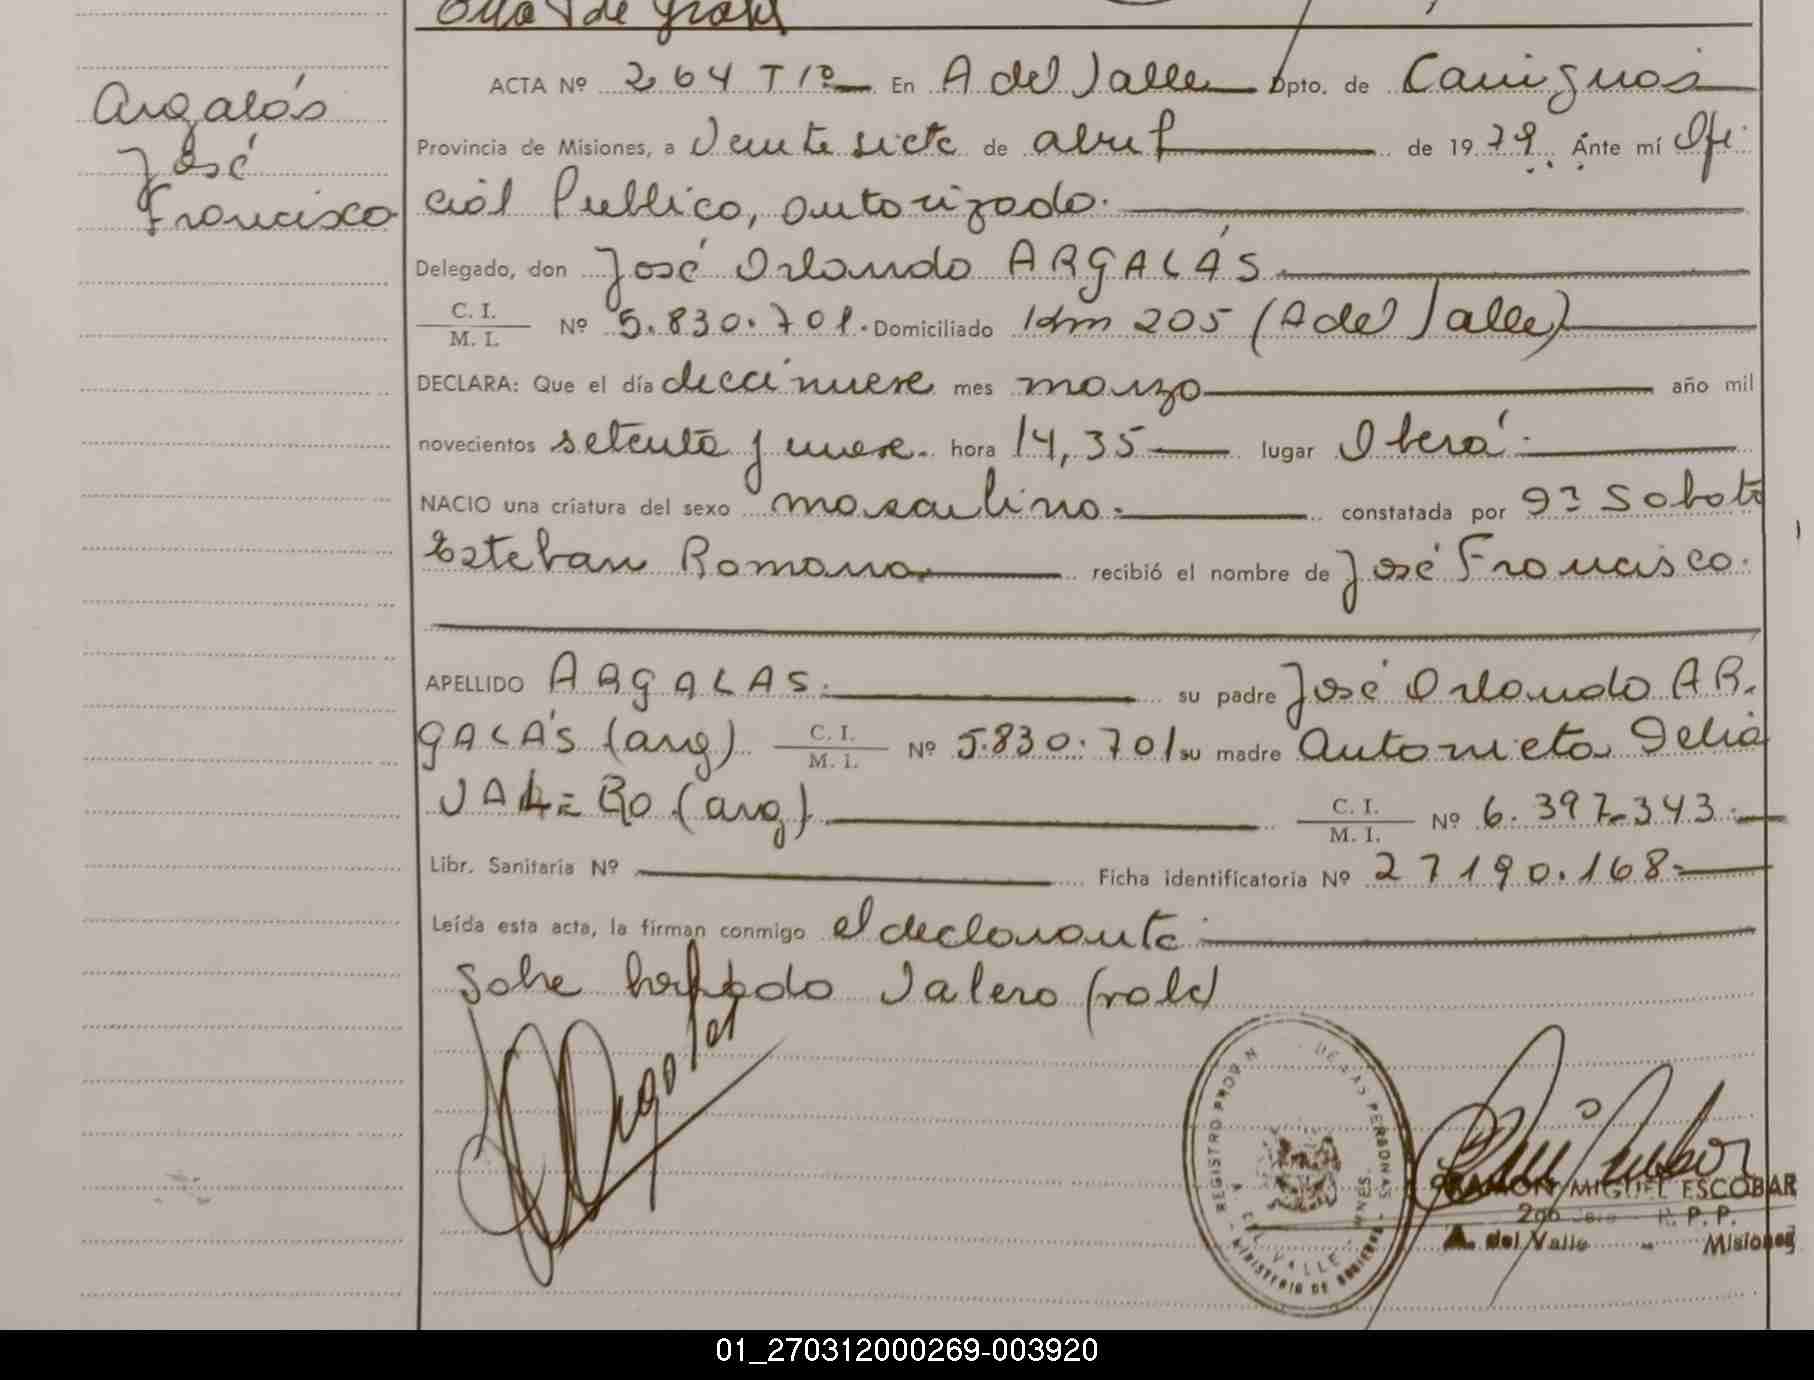 Argalás
José
Francisco
ACTA Nº 264 T 1º En A del Valle Dpto. de Cainguás
Provincia de Misiones, a Veintesiete de abril de 1979. Ante mí Ofi
cial Publico, autorizado.
Delegado, don José Orlando ARGALÁS
C. I.
M. I. Nº 5.830.701. Domiciliado Km 205 (A del Valle)
DECLARA: Que el día diecinueve mes marzo año mil
novecientos setenta y nueve. hora 14,35 lugar Oberá.
NACIO una criatura del sexo masculino. constatada por
Esteban Romano recibió el nombre de José Francisco.
APELLIDO ARGALAS. su padre José Orlando AR.
GALÁS (arg) C. I.
M. I. Nº 5.830.701 su madre Antonieta Delia
VALERO (arg) C. I.
M. I. Nº 6.397.343.
Libr. Sanitaria Nº Ficha identificatoria Nº 27190.168
Leída esta acta, la firman conmigo el declarante
Sobre Valero (vale)
REGISTRO PROVIN DE LAS PERSONAS
A. DEL VALLE - MNES.
MINISTERIO DE GOBIERNO
RAMON MIGUEL ESCOBAR
R. P. P.
A. del Valle - Misiones
01_270312000269-003920